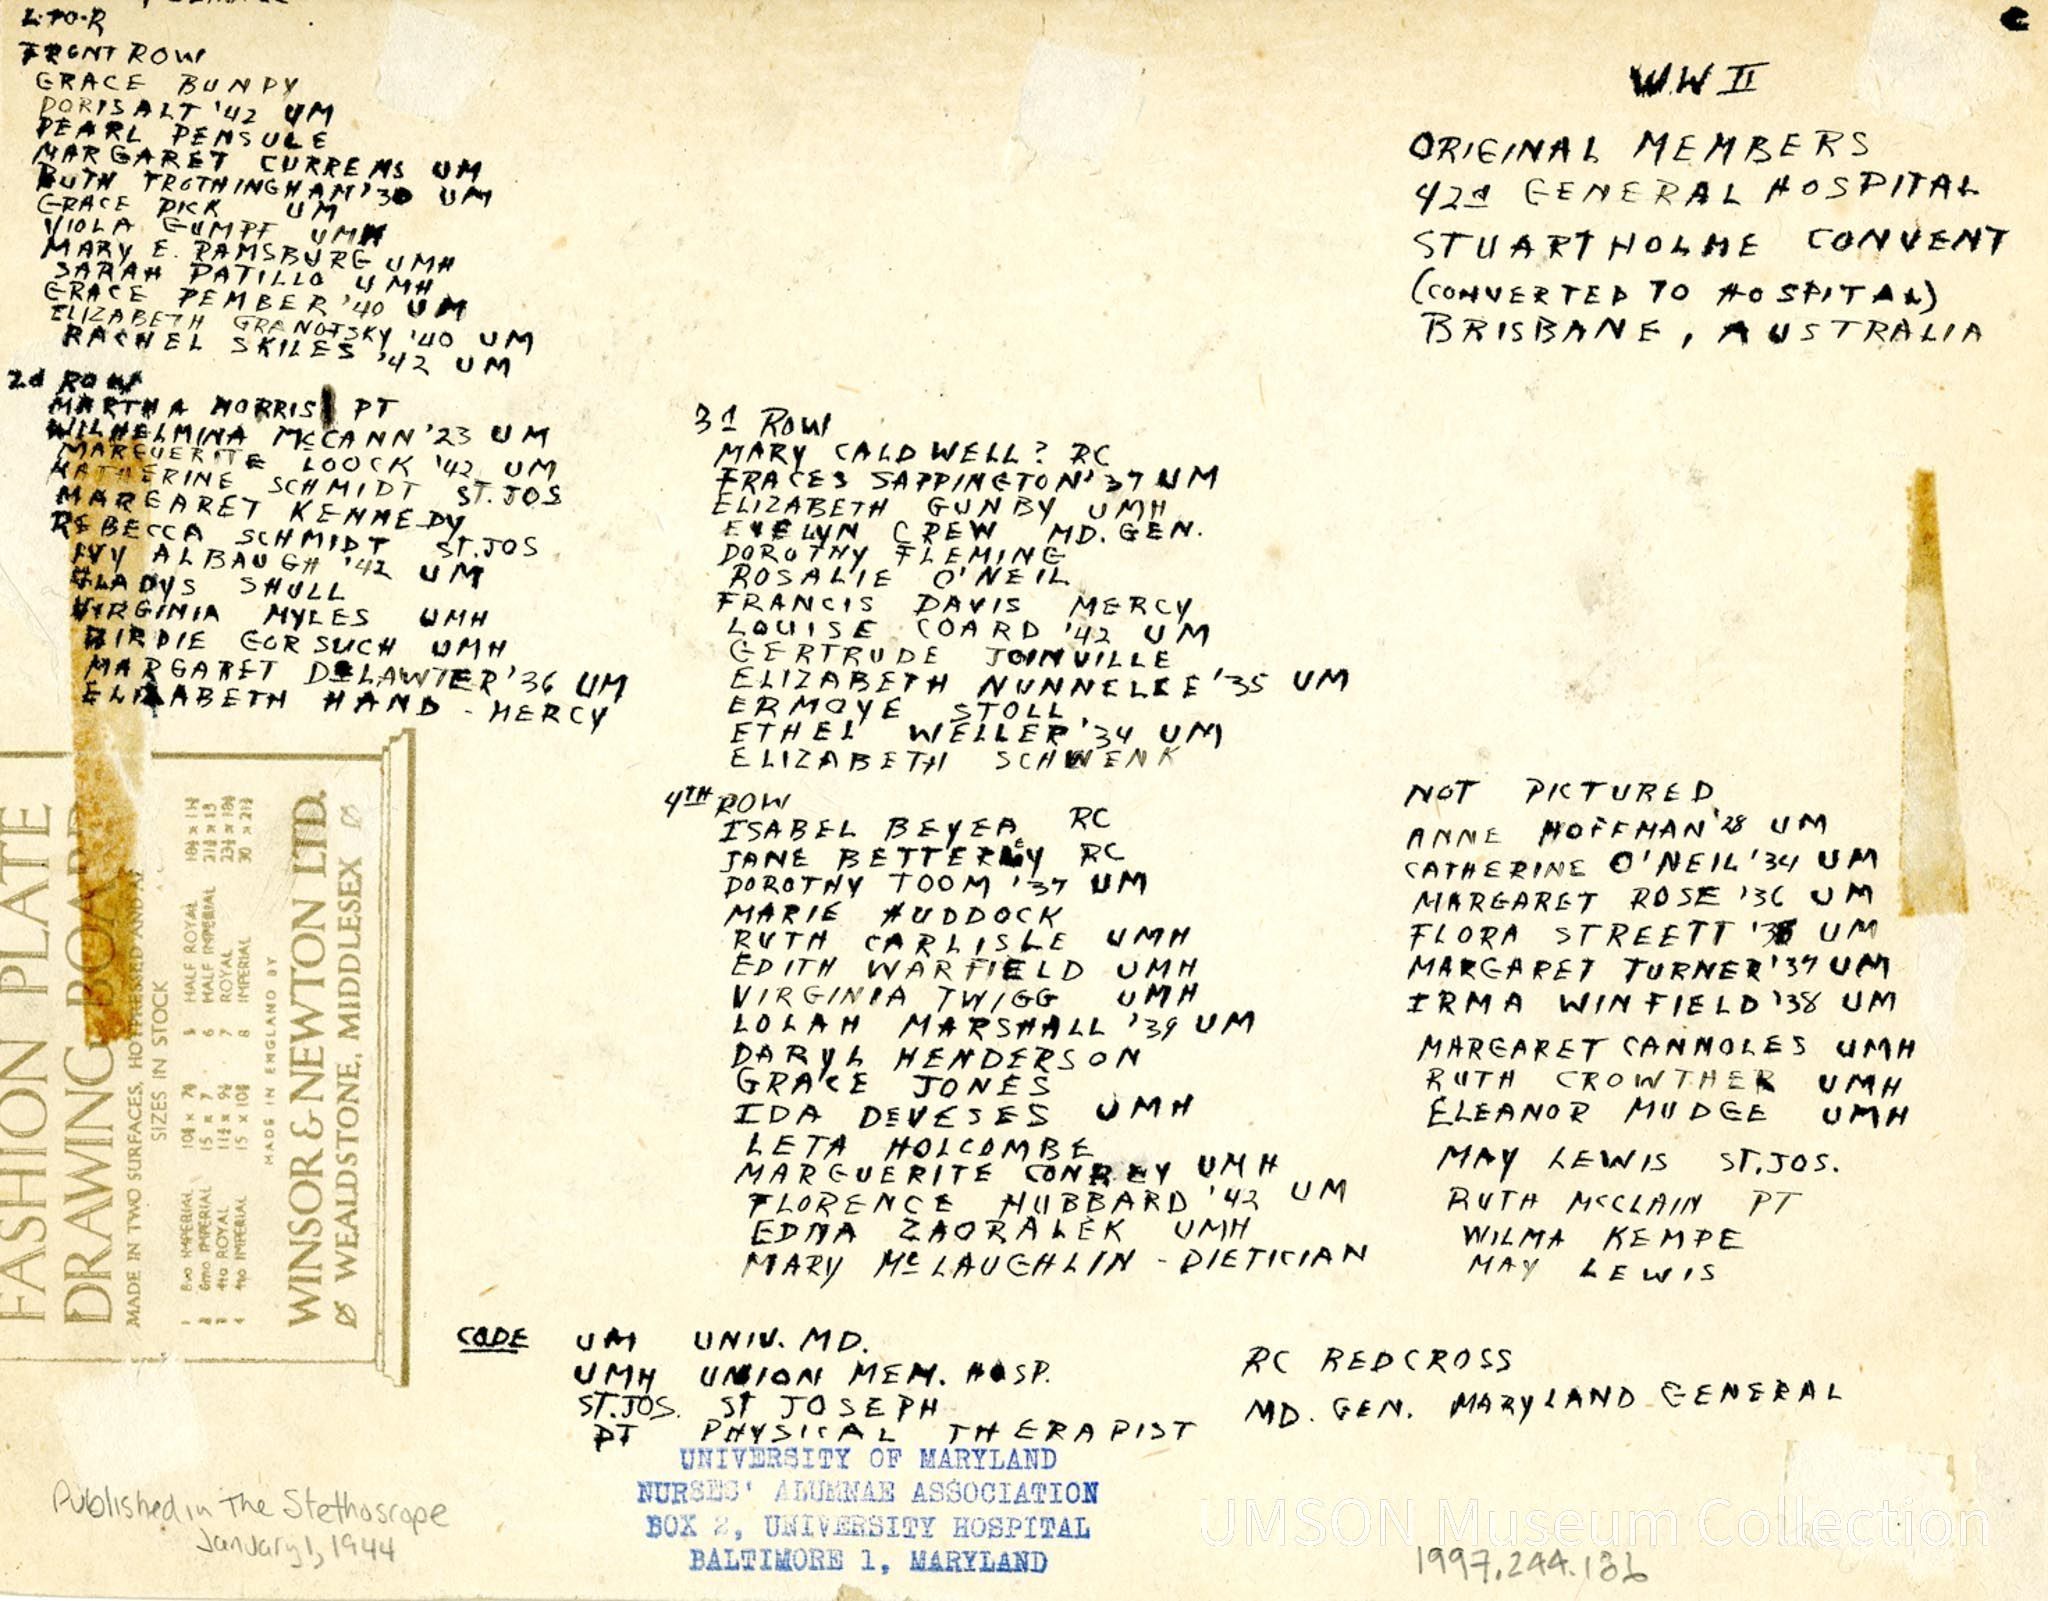 L-TO-R
FRONT ROW
GRACE BUNDY
DORIS ALT '42 UM
PEARL PENSULE
MARGARET CURRENS UM
RUTH FROTHINGHAM '30 UM
GRACE DICK UM
VIOLA GUMPF UMH
MARY E. RAMSBURG UMH
SARAH PATILLO UMH
GRACE PEMBER '40 UM
ELIZABETH GRANOFSKY '40 UM
RACHEL SKILES '42 UM
2d ROW
MARTHA NORRIS PT
WILHELMINA McCANN '23 UM
MARGUERITE LOOCK '42 UM
KATHERINE SCHMIDT ST. JOS
MARGARET KENNEDY
REBECCA SCHMIDT ST. JOS
IVY ALBAUGH '42 UM
GLADYS SHULL
VIRGINIA MYLES UMH
BIRDIE GORSUCH UMH
MARGARET DELAWTER '36 UM
ELIZABETH HAND - MERCY
3d ROW
MARY CALDWELL? RC
FRACES SAPPINGTON '37 UM
ELIZABETH GUNBY UMH
EVELYN CREW MD. GEN.
DOROTHY FLEMING
ROSALIE O'NEIL
FRANCIS DAVIS MERCY
LOUISE COARD '42 UM
GERTRUDE JOINVILLE
ELIZABETH NUNNELEE '35 UM
ERMOYE STOLL
ETHEL WELLER '34 UM
ELIZABETH SCHWENK
4TH ROW
ISABEL BEYER RC
JANE BETTERLEY RC
DOROTHY TOOM '37 UM
MARIE HUDDOCK
RUTH CARLISLE UMH
EDITH WARFIELD UMH
VIRGINIA TWIGG UMH
LOLAH MARSHALL '39 UM
DARYL HENDERSON
GRACE JONES
IDA DEVESES UMH
LETA HOLCOMBE
MARGUERITE CONREY UMH
FLORENCE HUBBARD '42 UM
EDNA ZAORALEK UMH
MARY McLAUGHLIN - DIETICIAN
W.W II
ORIGINAL MEMBERS
42d GENERAL HOSPITAL
STUARTHOLME CONVENT
(CONVERTED TO HOSPITAL)
BRISBANE, AUSTRALIA
NOT PICTURED
ANNE HOFFMAN '28 UM
CATHERINE O'NEIL '34 UM
MARGARET ROSE '36 UM
FLORA STREETT UM
MARGARET TURNER '37 UM
IRMA WINFIELD '38 UM
MARGARET CANNOLES UMH
RUTH CROWTHER UMH
ELEANOR MUDGE UMH
MAY LEWIS ST. JOS.
RUTH McCLAIN PT
WILMA KEMPE
MAY LEWIS
CODE UM UNIV. MD.
UMH UNION MEM. HOSP.
ST. JOS. ST JOSEPH
PT PHYSICAL THERAPIST
RC REDCROSS
MD. GEN. MARYLAND GENERAL
UNIVERSITY OF MARYLAND
NURSES' ALUMNAE ASSOCIATION
BOX 2, UNIVERSITY HOSPITAL
BALTIMORE 1, MARYLAND
Published in The Stethoscope
January 1, 1944
UMSON Museum Collection
1997.244.136
FASHION PLATE
DRAWING BOARD
MADE IN TWO SURFACES, HOTPRESSED AND
SIZES IN STOCK
1 8vo IMPERIAL
2 6mo IMPERIAL 15 x 7
3 4to ROYAL
4 4to IMPERIAL
5 HALF ROYAL
6 HALF IMPERIAL
7 ROYAL
8 IMPERIAL
MADE IN ENGLAND BY
WINSOR & NEWTON LTD.
WEALDSTONE, MIDDLESEX